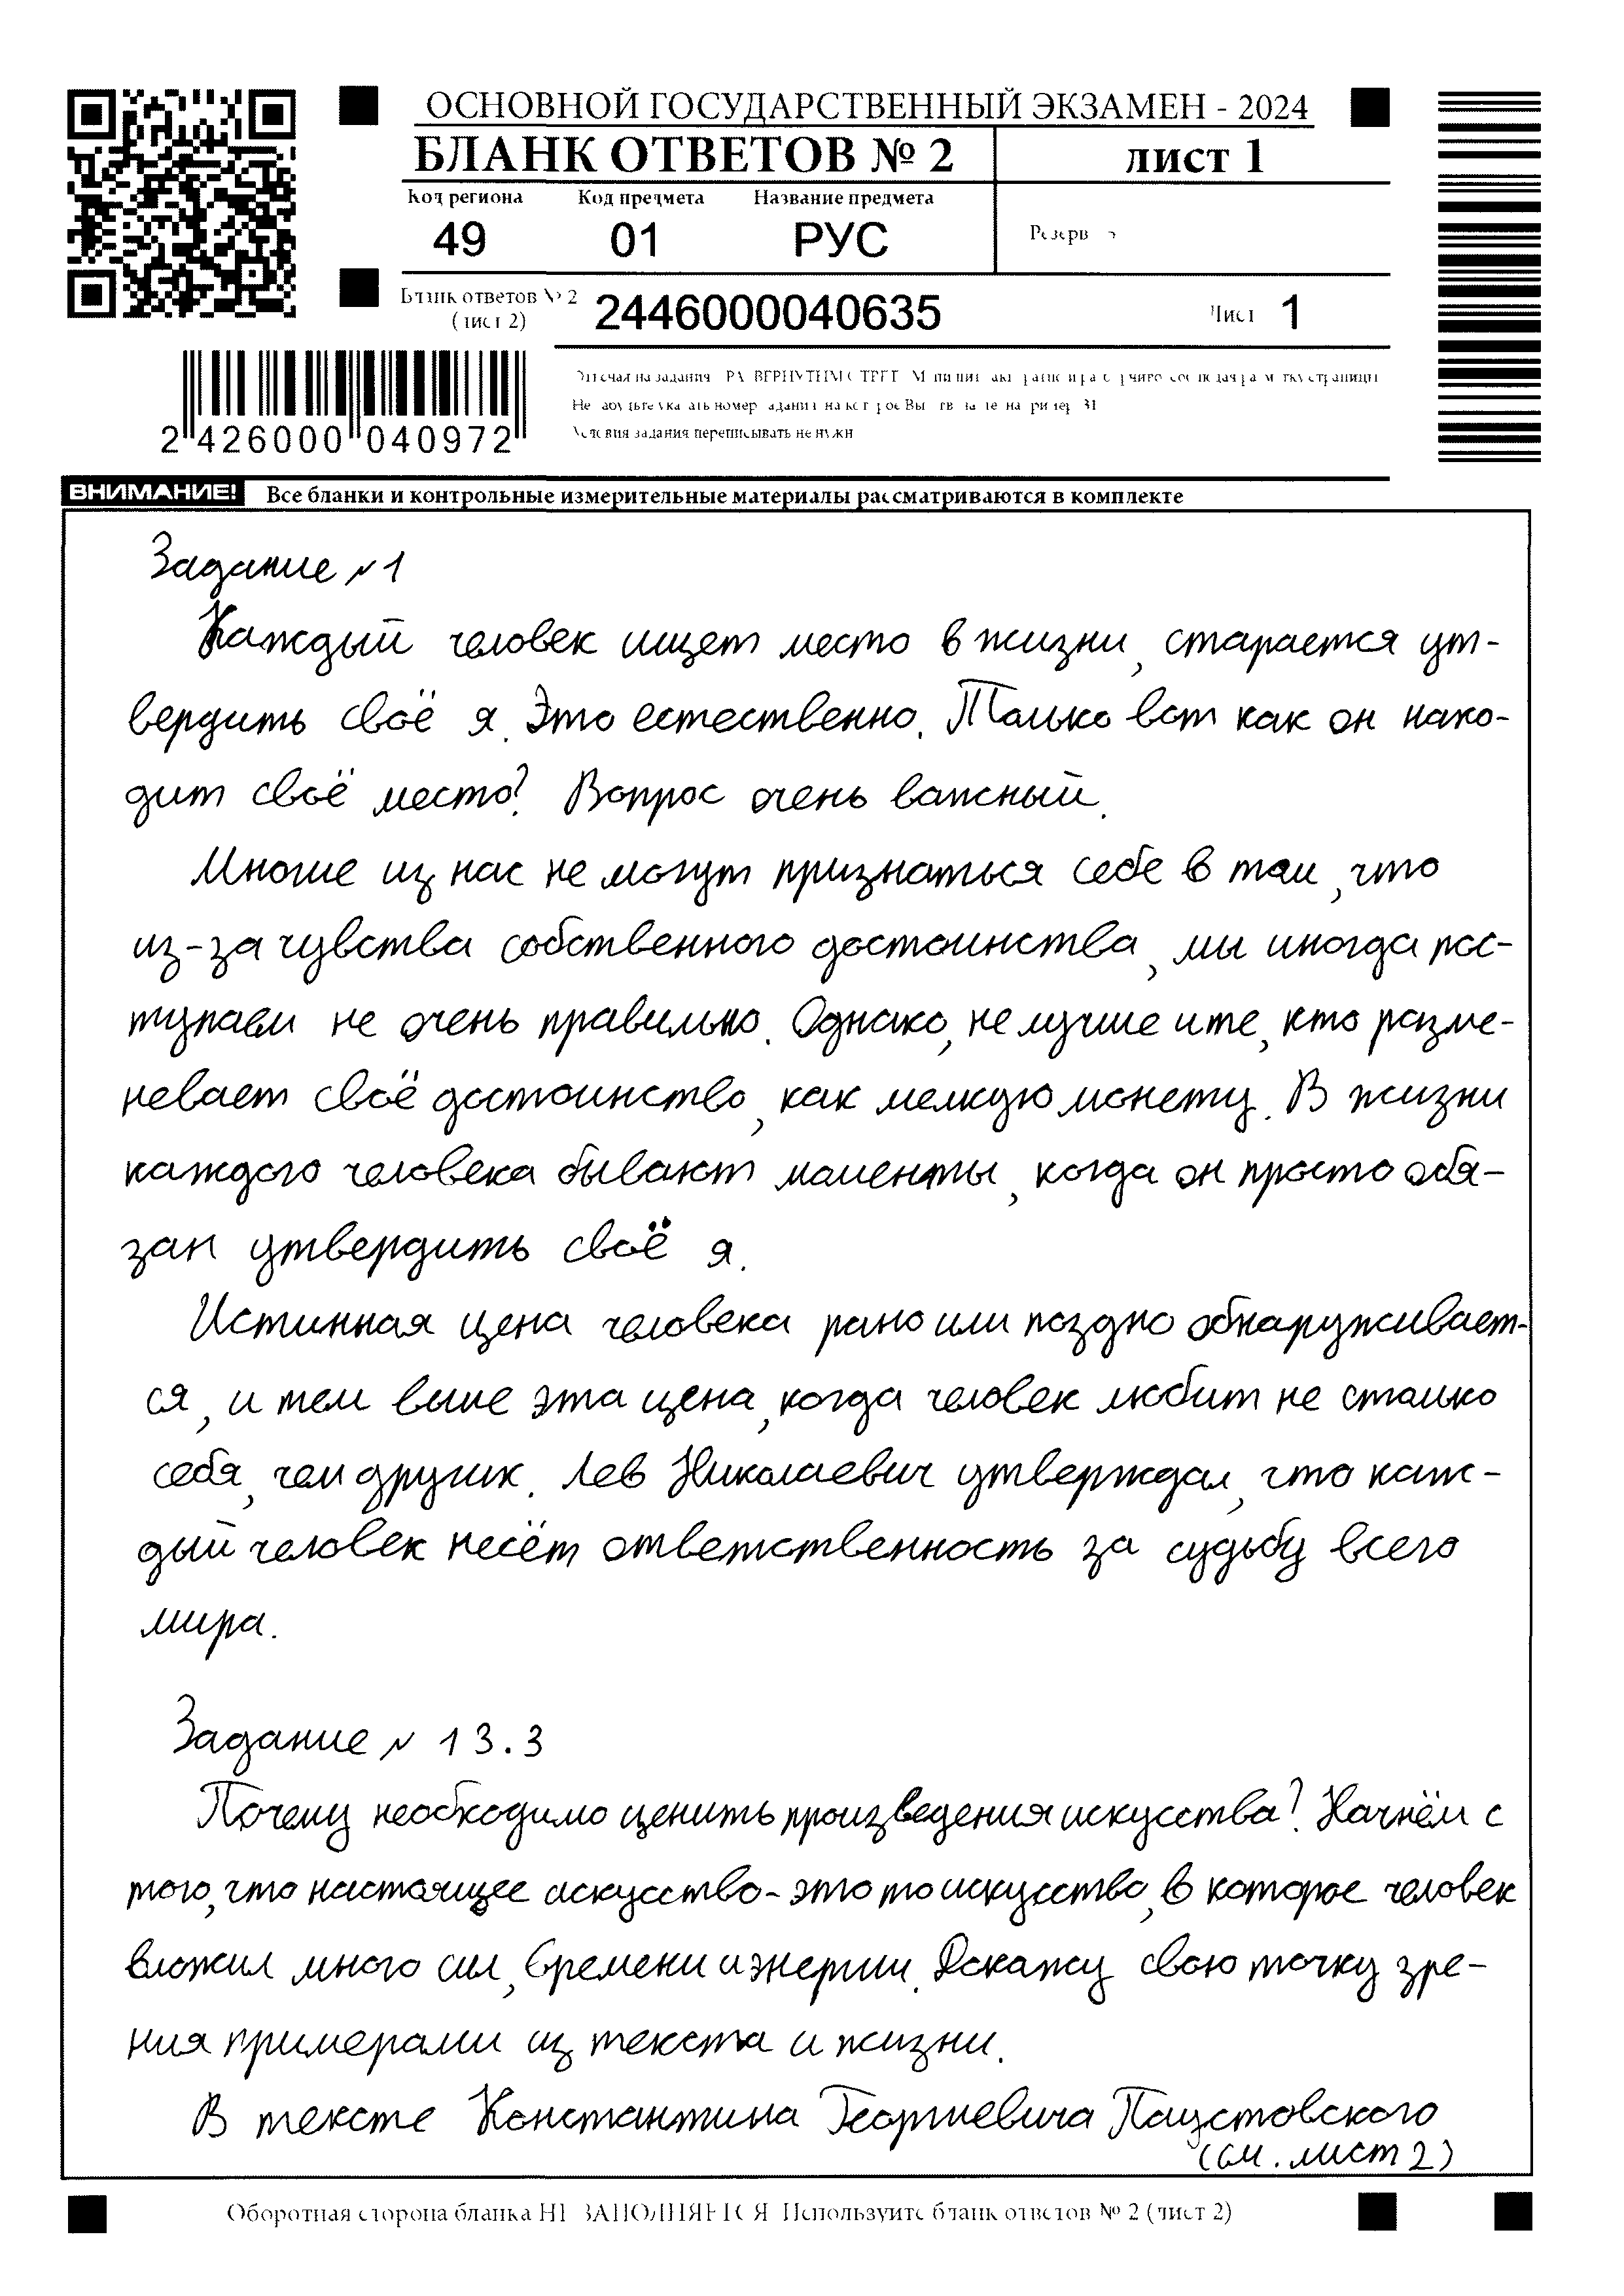 ОСНОВНОЙ ГОСУДАРСТВЕННЫЙ ЭКЗАМЕН - 2024
БЛАНК ОТВЕТОВ № 2
лист 1
Код региона Код предмета Название предмета
49 01 РУС
Резерв
Бланк ответов № 2
(лист 2)
2446000040635
Лист 1
2 426000 040972
Условия задания переписывать не нужн
ВНИМАНИЕ! Все бланки и контрольные измерительные материалы рассматриваются в комплекте
Задание №1
Каждый человек ищет место в жизни, старается ут-
вердить своё я. Это естественно. Только вот как он нахо-
дит своё место? Вопрос очень важный.
Многие из нас не могут признаться себе в том, что
из-за чувства собственного достоинства, мы иногда пос-
тупаем не очень правильно. Однако, не лучше и те, кто разме-
невает своё достоинство, как мелкую монету. В жизни
каждого человека бывают моменты, когда он просто обя-
зан утвердить своё я.
Истинная цена человека рано или поздно обнаруживает-
ся, и тем выше эта цена, когда человек любит не столько
себя, чем других. Лев Николаевич утверждал, что каж-
дый человек несёт ответственность за судьбу всего
мира.
Задание № 13.3
Почему необходимо ценить произведения искусства? Начнём с
того, что настоящее искусство - это то искусство, в которое человек
вложил много сил, времени и энергии. Докажу свою точку зре-
ния примерами из текста и жизни.
В тексте Константина Георгиевича Паустовского
(см. лист 2)
Оборотная сторона бланка НЕ ЗАПОЛНЯЕТСЯ. Используйте бланк ответов № 2 (лист 2)